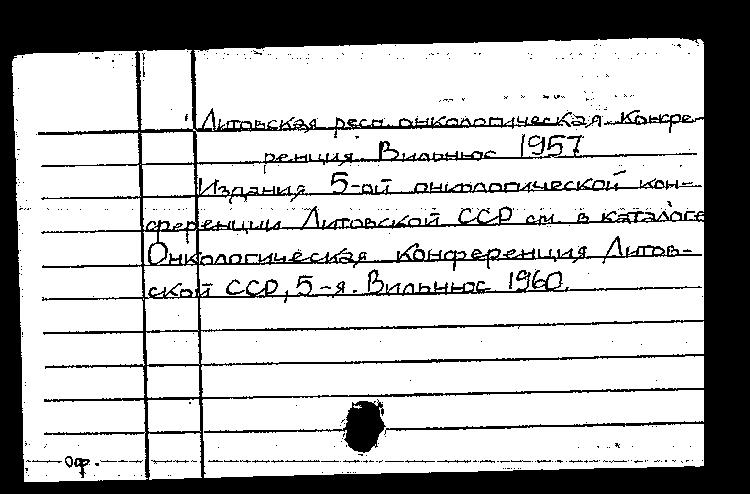 Литовская респ. онкологическая конфе-
ренция. Вильнюс 1957
Издания 5-ой онкологической кон-
ференции Литовской ССР см. в каталоге
Онкологическая конференция Литов-
ской ССР, 5-я. Вильнюс 1960.
Оф.